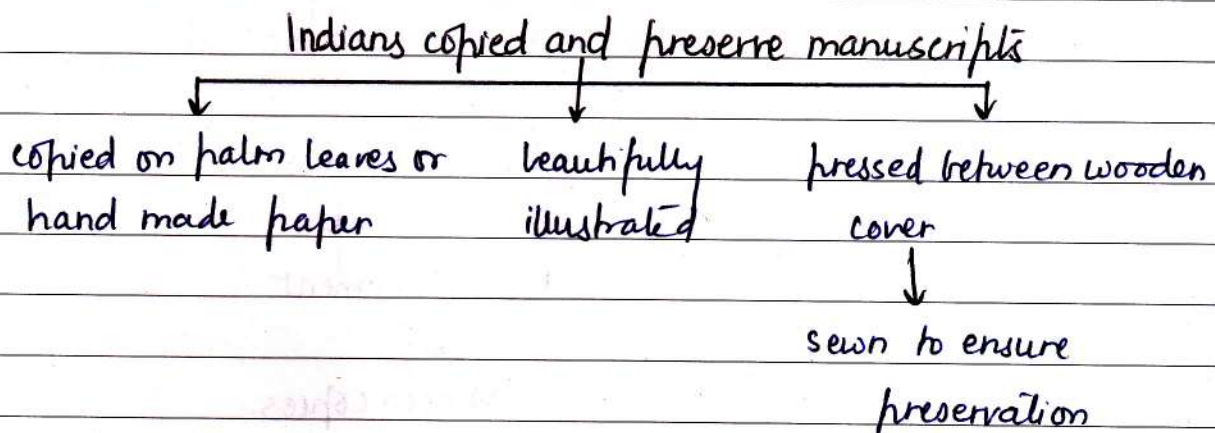 Indians copied and preserve manuscripts
copied on palm leaves or
hand made paper
beautifully
illustrated
pressed between wooden
cover
sewn to ensure
preservation